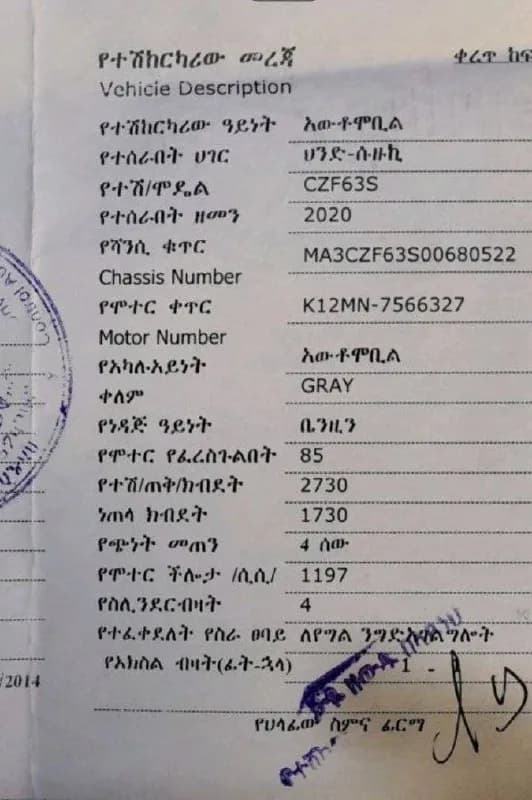 የተሽከርካሪው መረጃ
ቀረጥ ከፍ
Vehicie Description
የተሽከርካሪው ዓይነት አውቶሞቢል
የተሰራበት ሀገር ህንድ-ሱዙኪ
የተሽ/ሞዴል CZF63S
የተሰራበት ዘመን 2020
የሻንሲ ቁጥር MA3CZF63S00680522
Chassis Number
የሞተር ቀጥር K12MN-7566327
Motor Number
የአካሉ-አይነት አውቶሞቢል
ቀለም GRAY
የነዳጅ ዓይነት ቤንዚን
የሞተር የፈረስጉልበት 85
የተሽ/ጠቅ/ክብደት 2730
ነጠላ ክብደት 1730
የጭነት መጠን 4 ሰው
የሞተር ችሎታ /ሲሲ/ 1197
የስሊንደርብዛት 4
የተፈቀደለት የስራ ፀባይ ለየግል ንግድ አገልግሎት
የአክስል ብዛት(ፊት-ኋላ) 1 -
/2014
የሀላፊው ስምና ፊርማ